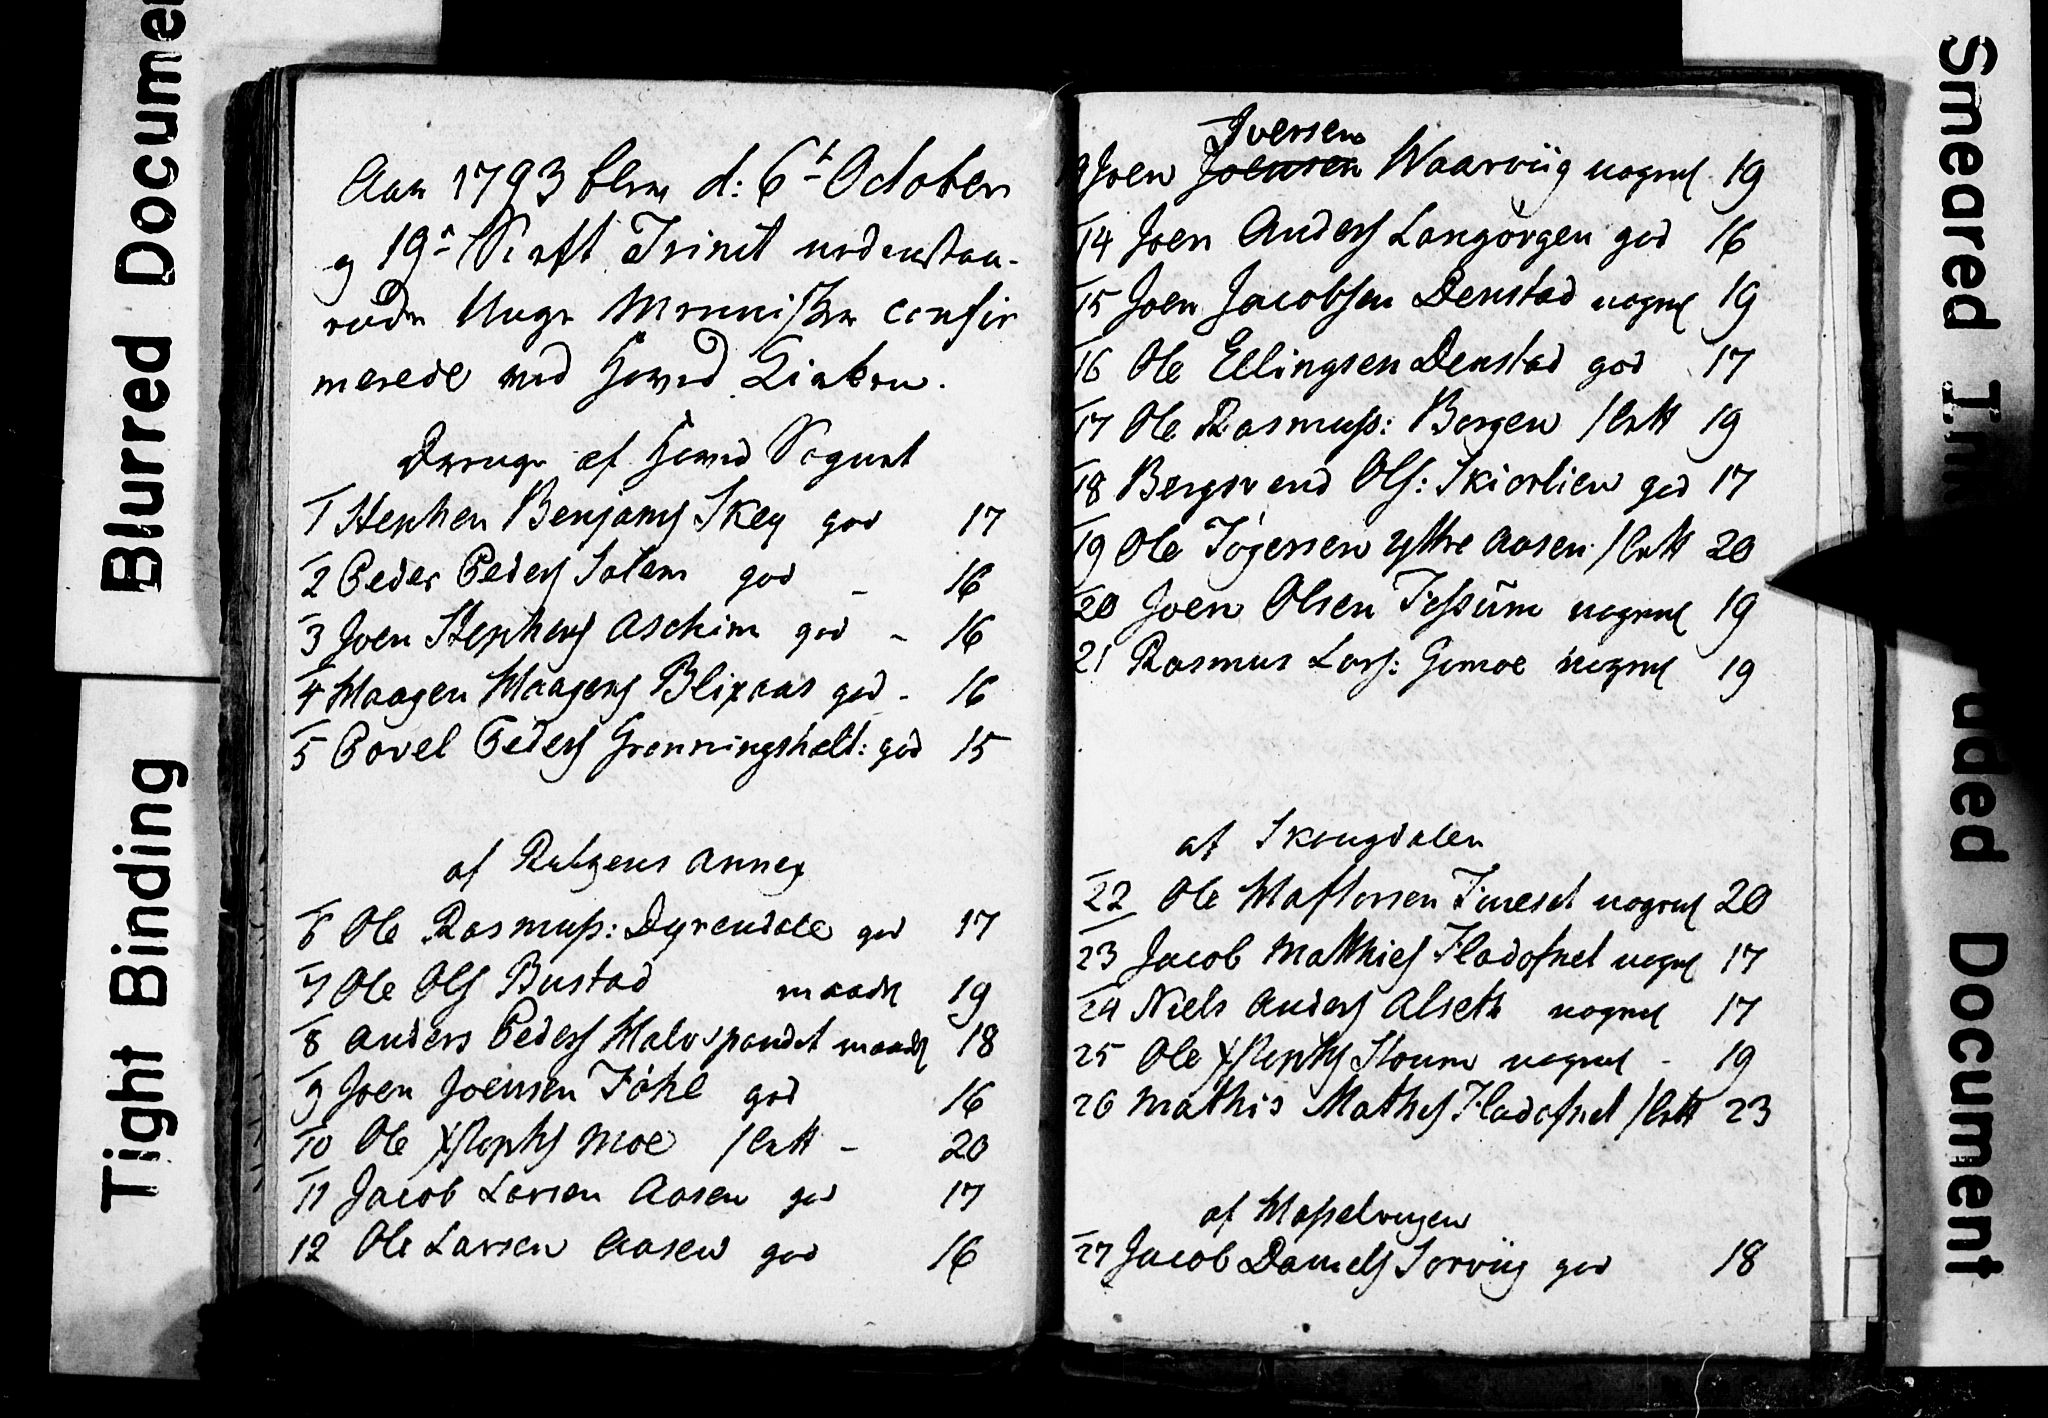 Blurred Document
Tight Binding
Aar 1793 blev d: 6t October
og 19de S. aft Trinit nedenstaa-
ende Unge Mennisker confir
merede ved Hoved Kirken.
Drenge af Hoved Sognet
1 Stephen Benjams Skey god 17
2 Peder Peders Solem god - 16
3 Joen Stephens Aschim god - 16
4 Haagen Haagens Blixaas god - 16
5 Povel Peders Grønningshalt: god 15
af Ratzens Annex
6 Ole Rasmuss: Dyrendale god 17
7 Ole Ols Bustad maadl 19
8 Anders Peders Halvspandet maadl 18
9 Joen Joensen Tøhl god 16
10 Ole Xstophs Moe slett - 20
11 Jacob Larsen Aasen god 17
12 Ole Larsen Aasen god 16
Iversen
Joen Joensen Waarviig nogenl 19
14 Joen Anders Langørgen god 16
15 Joen Jacobsen Denstad nogenl 19
16 Ole Ellingsen Denstad god 17
17 Ole Rasmuss: Bergen slett 19
18 Bergsvend Ols: Skiørlien god 17
19 Ole Tøgersen yttre Aasen slett 20
20 Joen Olsen Tessum nogenl 19
21 Rasmus Lars: Gimoe nogenl 19
af Skougdalen
22 Ole Haftorsen nogenl 20
23 Jacob Matthies Fladosnet nogenl 17
24 Niels Anders Alseth nogenl 17
25 Ole Xstophs nogenl - 19
26 Mathis Mathes Fladosnet slett 23
af Hasselvugen
27 Jacob Daniels Sørviig god 18
Smeared
Document